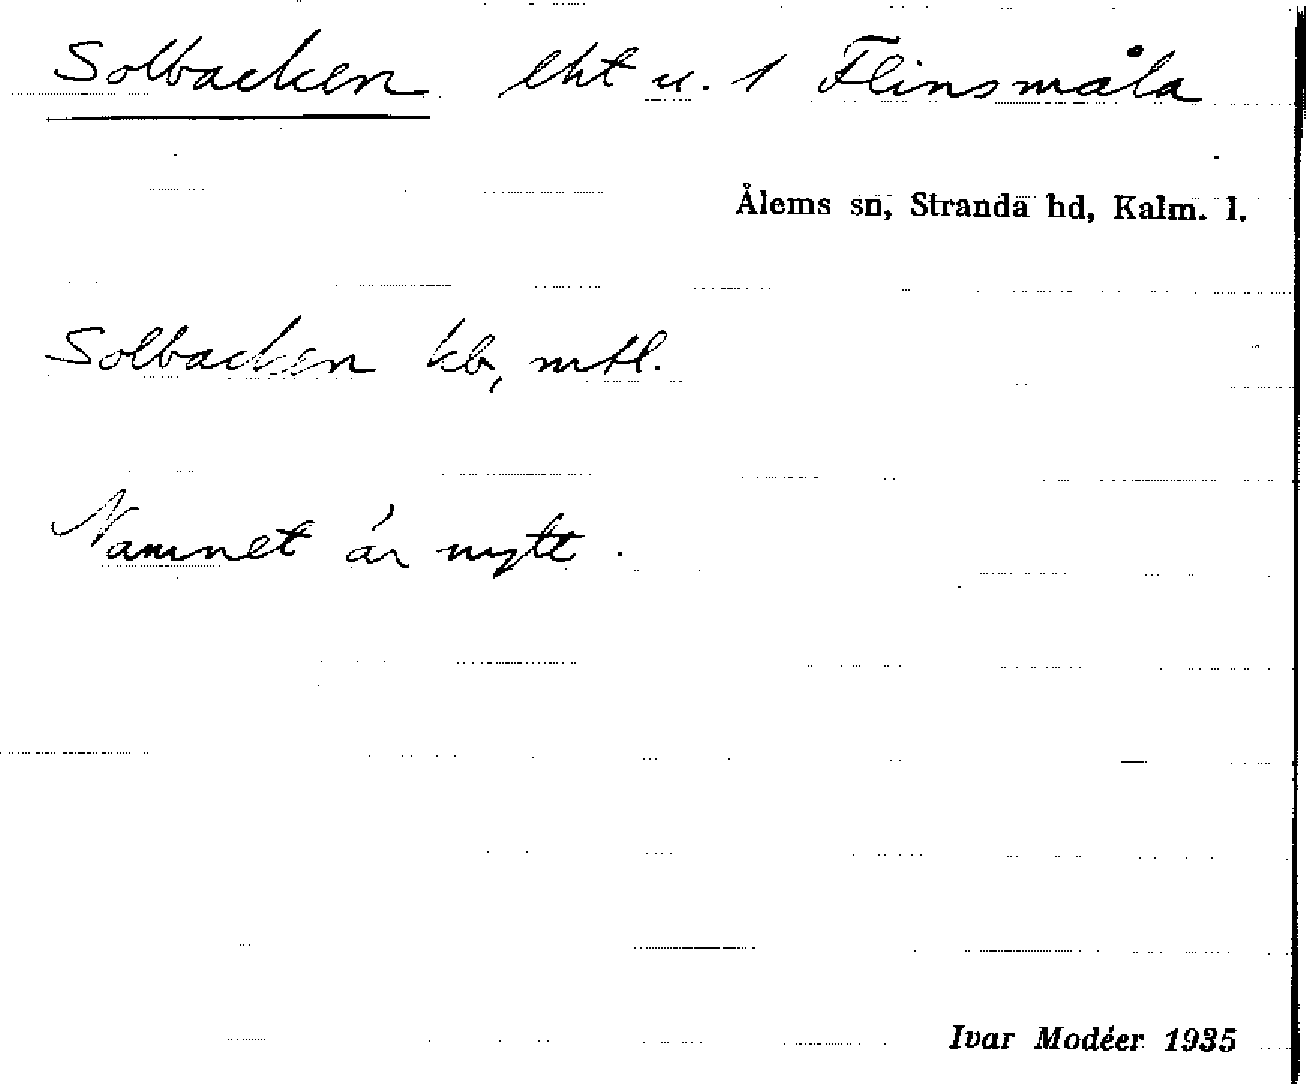 Solbacken lht u. 1 Flinsmåla
Ålems sn, Stranda hd, Kalm. l.
Solbacken kb, mtl.
Namnet är nytt.
Ivar Modéer 1935